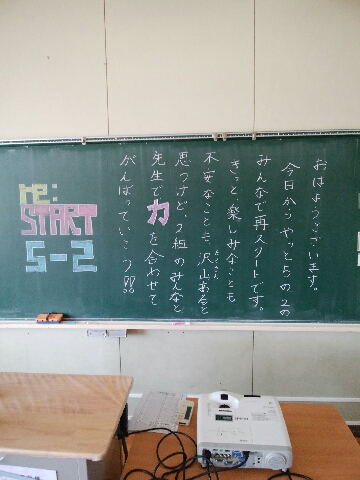 おはようございます。
今日からやっと5の2の
みんなで再スタートです。
きっと楽しみなことも
不安なことも、沢山あると
たくさん
思うけど、2組のみんなと
先生で力を合わせて
がんばっていこう!!
re:
START
5-2